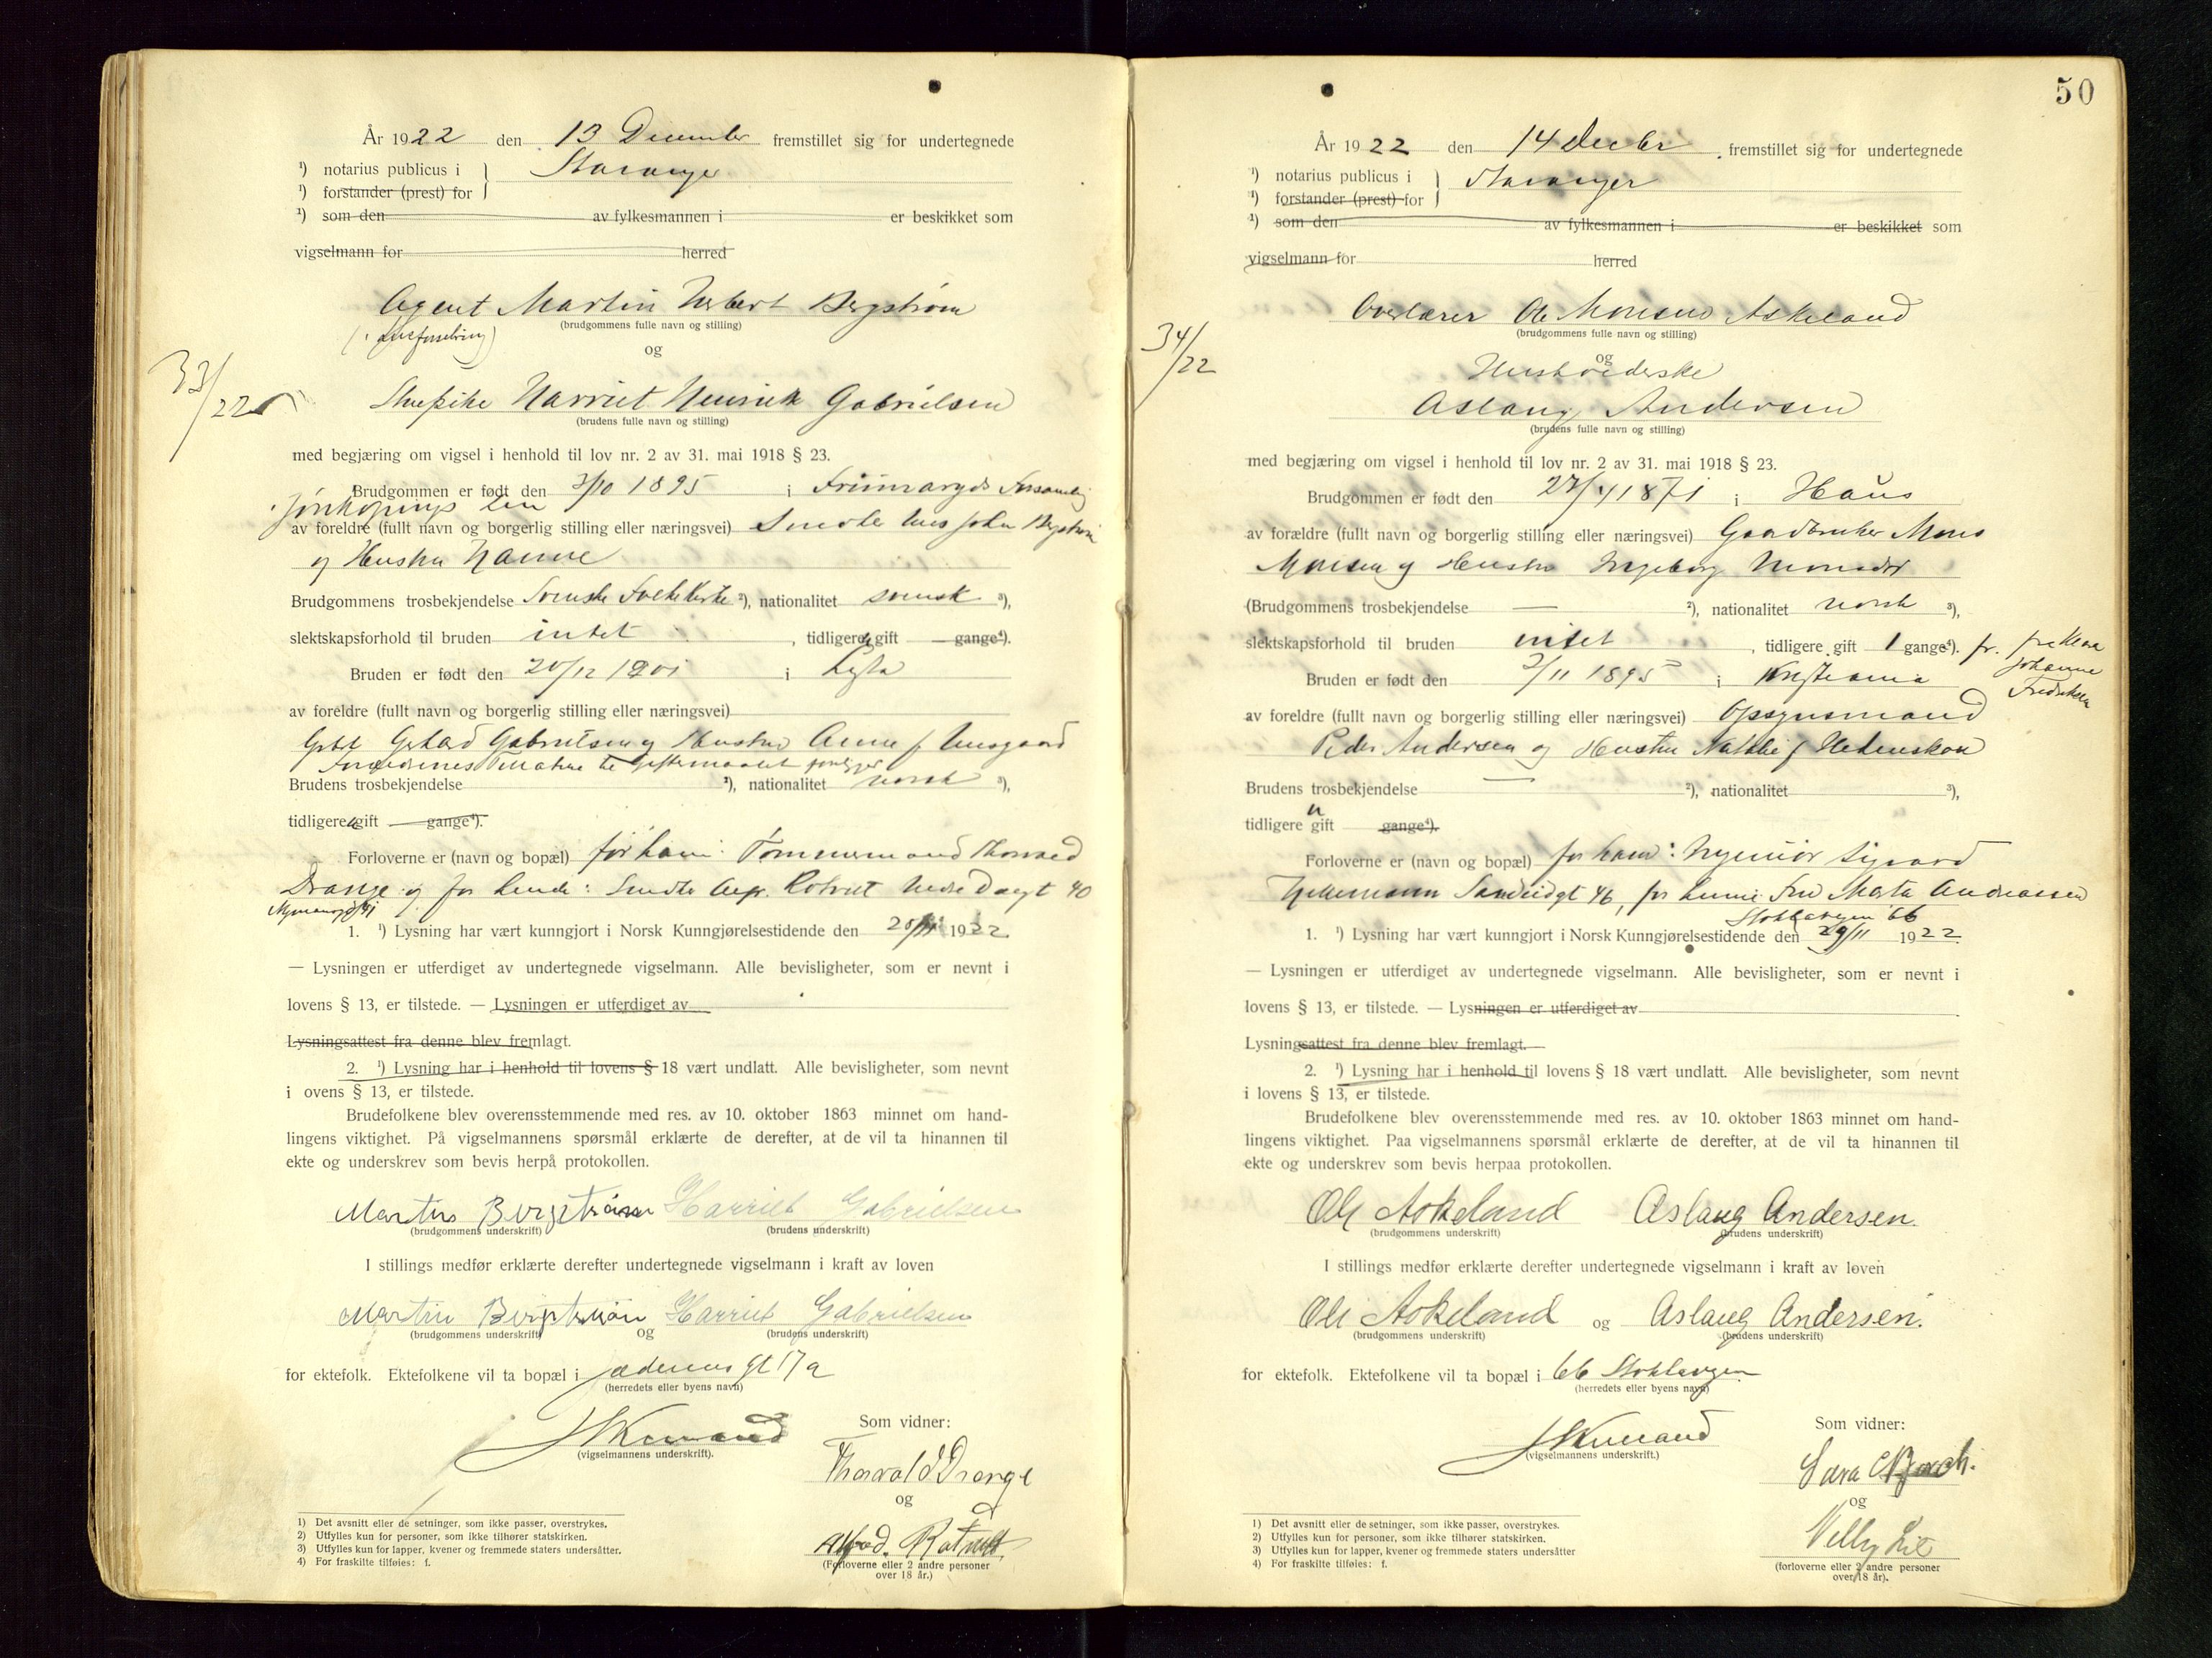 År 1922 den 13 December fremstillet sig for undertegnede
¹) notarius publicus i } Stavanger
¹) forstander (prest) for
¹) som den av fylkesmannen i er beskikket som
vigselmann for herred
Agent Martin Herbert Bergstrøm
(brudgommens fulle navn og stilling)
og
33/22
Harriet Henrik Gabrielsen
(brudens fulle navn og stilling)
med begjæring om vigsel i henhold til lov nr. 2 av 31. mai 1918 § 23.
Brudgommen er født den 3/10 1895 i
Jönköpings len
av foreldre (fullt navn og borgerlig stilling eller næringsvei) John Bergstrøm
og Hustru Hanne
Brudgommens trosbekjendelse Svenske Folkekirke ²), nationalitet svensk ³),
slektskapsforhold til bruden intet , tidligere u gift gange⁴).
Bruden er født den 20/12 1901 i Lista
av foreldre (fullt navn og borgerlig stilling eller næringsvei)
Gabrielsen og Hustru Anne f
Brudens trosbekjendelse ²), nationalitet norsk ³),
tidligere u gift gange⁴).
Forloverne er (navn og bopæl) for ham: Tømmermand Thorvald
Drange og for hende: Nedre Dagt 40
1. ¹) Lysning har vært kunngjort i Norsk Kunngjørelsestidende den 20/11 1922
— Lysningen er utferdiget av undertegnede vigselmann. Alle bevisligheter, som er nevnt i
lovens § 13, er tilstede. — Lysningen er utferdiget av
Lysningsattest fra denne blev fremlagt.
2. ¹) Lysning har i henhold til lovens § 18 vært undlatt. Alle bevisligheter, som nevnt
i ovens § 13, er tilstede.
Brudefolkene blev overensstemmende med res. av 10. oktober 1863 minnet om hand-
lingens viktighet. På vigselmannens spørsmål erklærte de derefter, at de vil ta hinannen til
ekte og underskrev som bevis herpå protokollen.
Martin Bergstrøm Harriet Gabrielsen
(brudgommens underskrift) (brudens underskrift)
I stillings medfør erklærte derefter undertegnede vigselmann i kraft av loven
Martin Bergstrøm Harriet Gabrielsen
(brudgommens underskrift) og (brudens underskrift)
for ektefolk. Ektefolkene vil ta bopæl i Jæderens gt 17 a
(herredets eller byens navn)
Som vidner:
(vigselmannens underskrift).
Thorvald Drange
og
(Forloverne eller 2 andre personer
over 18 år.)
1) Det avsnitt eller de setninger, som ikke passer, overstrykes.
2) Utfylles kun for personer, som ikke tilhører statskirken.
3) Utfylles kun for lapper, kvener og fremmede staters undersåtter.
4) For fraskilte tilføies: f.
50
År 1922 den 14 Decbr fremstillet sig for undertegnede
¹) notarius publicus i } Stavanger
¹) forstander (prest) for
¹) som den av fylkesmannen i er beskikket som
vigselmann for herred
Overlærer Ole Monsen Askeland
(brudgommens fulle navn og stilling)
34/22
og
Husholderske
Aslaug Andersen
(brudens fulle navn og stilling)
med begjæring om vigsel i henhold til lov nr. 2 av 31. mai 1918 § 23.
Brudgommen er født den 1871 i Haus
av forældre (fullt navn og borgerlig stilling eller næringsvei) Gaardbruker Mons
Monsen og Hustru Ingeborg Monsdtr
(Brudgommens trosbekjendelse — ²), nationalitet norsk ³),
slektskapsforhold til bruden intet , tidligere gift 1 gange⁴).
Johanne
Bruden er født den 2/11 1895 i Kristiania
av foreldre (fullt navn og borgerlig stilling eller næringsvei) Opsynsmand
Peder Andersen og Hustru
Brudens trosbekjendelse — ²), nationalitet ³),
tidligere u gift gange⁴).
Forloverne er (navn og bopæl) for ham: Ingeniør Sigvard
46, for hende: Fru Marta Andreassen
66
1. ¹) Lysning har vært kunngjort i Norsk Kunngjørelsestidende den 29/11 1922
— Lysningen er utferdiget av undertegnede vigselmann. Alle bevisligheter, som er nevnt i
lovens § 13, er tilstede. — Lysningen er utferdiget av
Lysningsattest fra denne blev fremlagt.
2. ¹) Lysning har i henhold til lovens § 18 vært undlatt. Alle bevisligheter, som nevnt
i lovens § 13, er tilstede.
Brudefolkene blev overensstemmende med res. av 10. oktober 1863 minnet om hand-
lingens viktighet. Paa vigselmannens spørsmål erklærte de derefter, at de vil ta hinannen til
ekte og underskrev som bevis herpaa protokollen.
Ole Askeland Aslaug Andersen.
(brudgommens underskrift) (brudens underskrift)
I stillings medfør erklærte derefter undertegnede vigselmann i kraft av loven
Ole Askeland og Aslaug Andersen.
(brudgommens underskrift) (brudens underskrift)
for ektefolk. Ektefolkene vil ta bopæl i 66
(herredets eller byens navn)
Som vidner:
(vigselmannens underskrift.)
Sara
og
(forloverne eller 2 andre personer
over 18 år).
1) Det avsnitt eller de setninger, som ikke passer, overstrykes.
2) Utfylles kun for personer, som ikke tilhører statskirken.
3) Utfylles kun for lapper, kvener og fremmede staters undersåtter
4) For fraskilte tilføies: f.